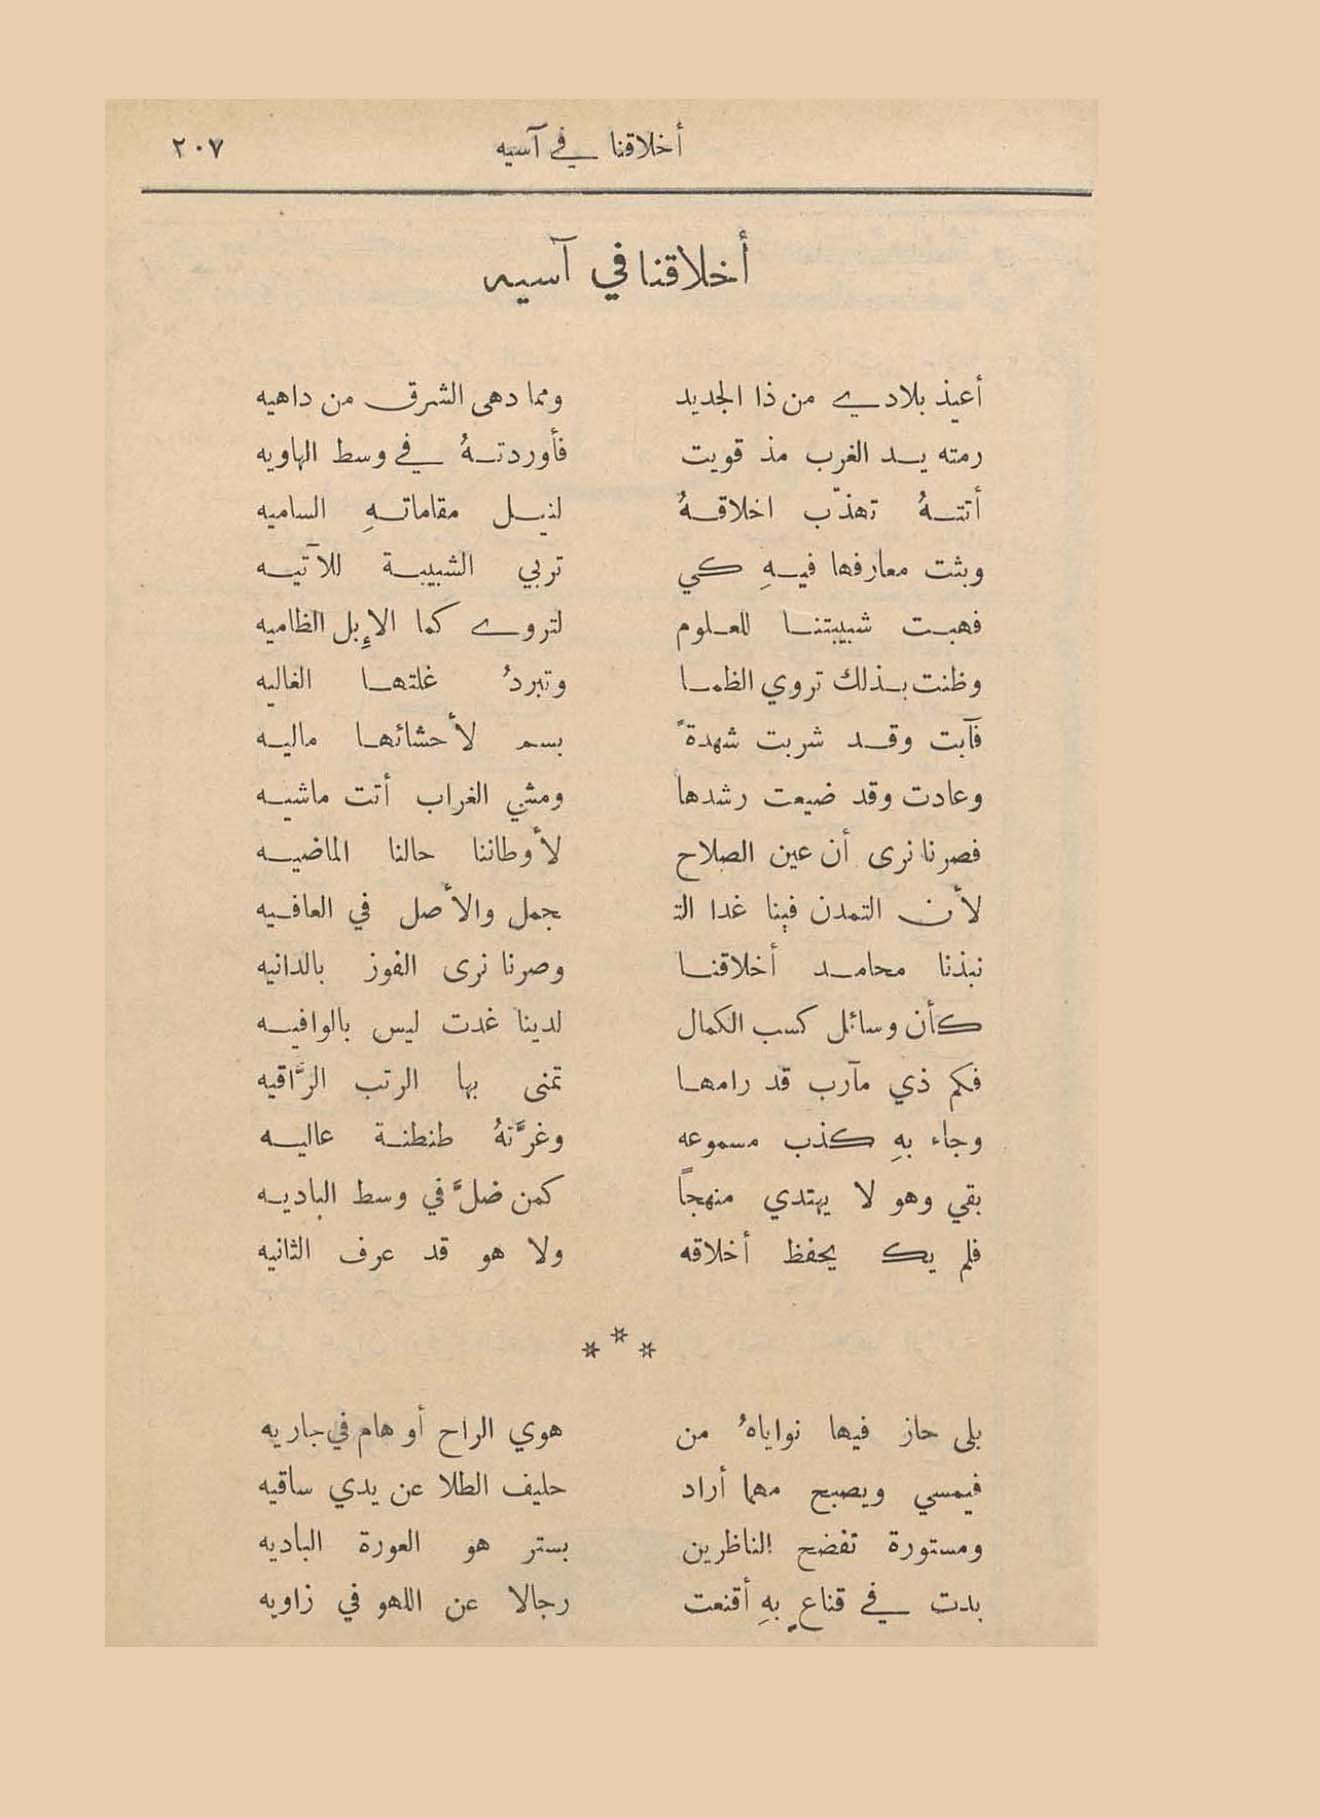 أخلاقنا في آسيه ٢٠٧
أخلاقنا في آسيه
أعيذ بلادي من ذا الجديد ومما دهى الشرق من داهيه
رمته يد الغرب مذ قويت فأوردتهُ في وسط الهاويه
أتتهُ تهذّب اخلاقهُ لنيل مقاماتهِ الساميه
وبثت معارفها فيهِ كي تربي الشبيبة للآتيه
فهبت شبيبتنا للعلوم لتروي كما الإبل الظاميه
وظنت بذلك تروي الظما وتبردُ غلتها الغاليه
فآبت وقد شربت شهدةً بسم لأحشائها ماليه
وعادت وقد ضيعت رشدها ومشي الغراب أتت ماشيه
فصرنا نرى أن عين الصلاح لأوطاننا حالنا الماضيه
لأن التمدن فينا غدا الت جمل والأصل في العافيه
نبذنا محامد أخلاقنا وصرنا نرى الفوز بالدانيه
كأن وسائل كسب الكمال لدينا غدت ليس بالوافيه
فكم ذي مآرب قد رامها تمنى بها الرتب الرَّاقيه
وجاء بهِ كذب مسموعه وغرَّتهُ طنطنة عاليه
بقي وهو لا يهتدي منهجاً كمن ضلَّ في وسط الباديه
فلم يك يحفظ أخلاقه ولا هو قد عرف الثانيه
* * *
بلى حاز فيها نواياهُ من هوي الراح أو هام في جاريه
فيمسي ويصبح مهما أراد حليف الطلا عن يدي ساقيه
ومستورة تفضح الناظرين بستر هو العورة الباديه
بدت في قناعٍ بهِ أقنعت رجالا عن اللهو في زاويه